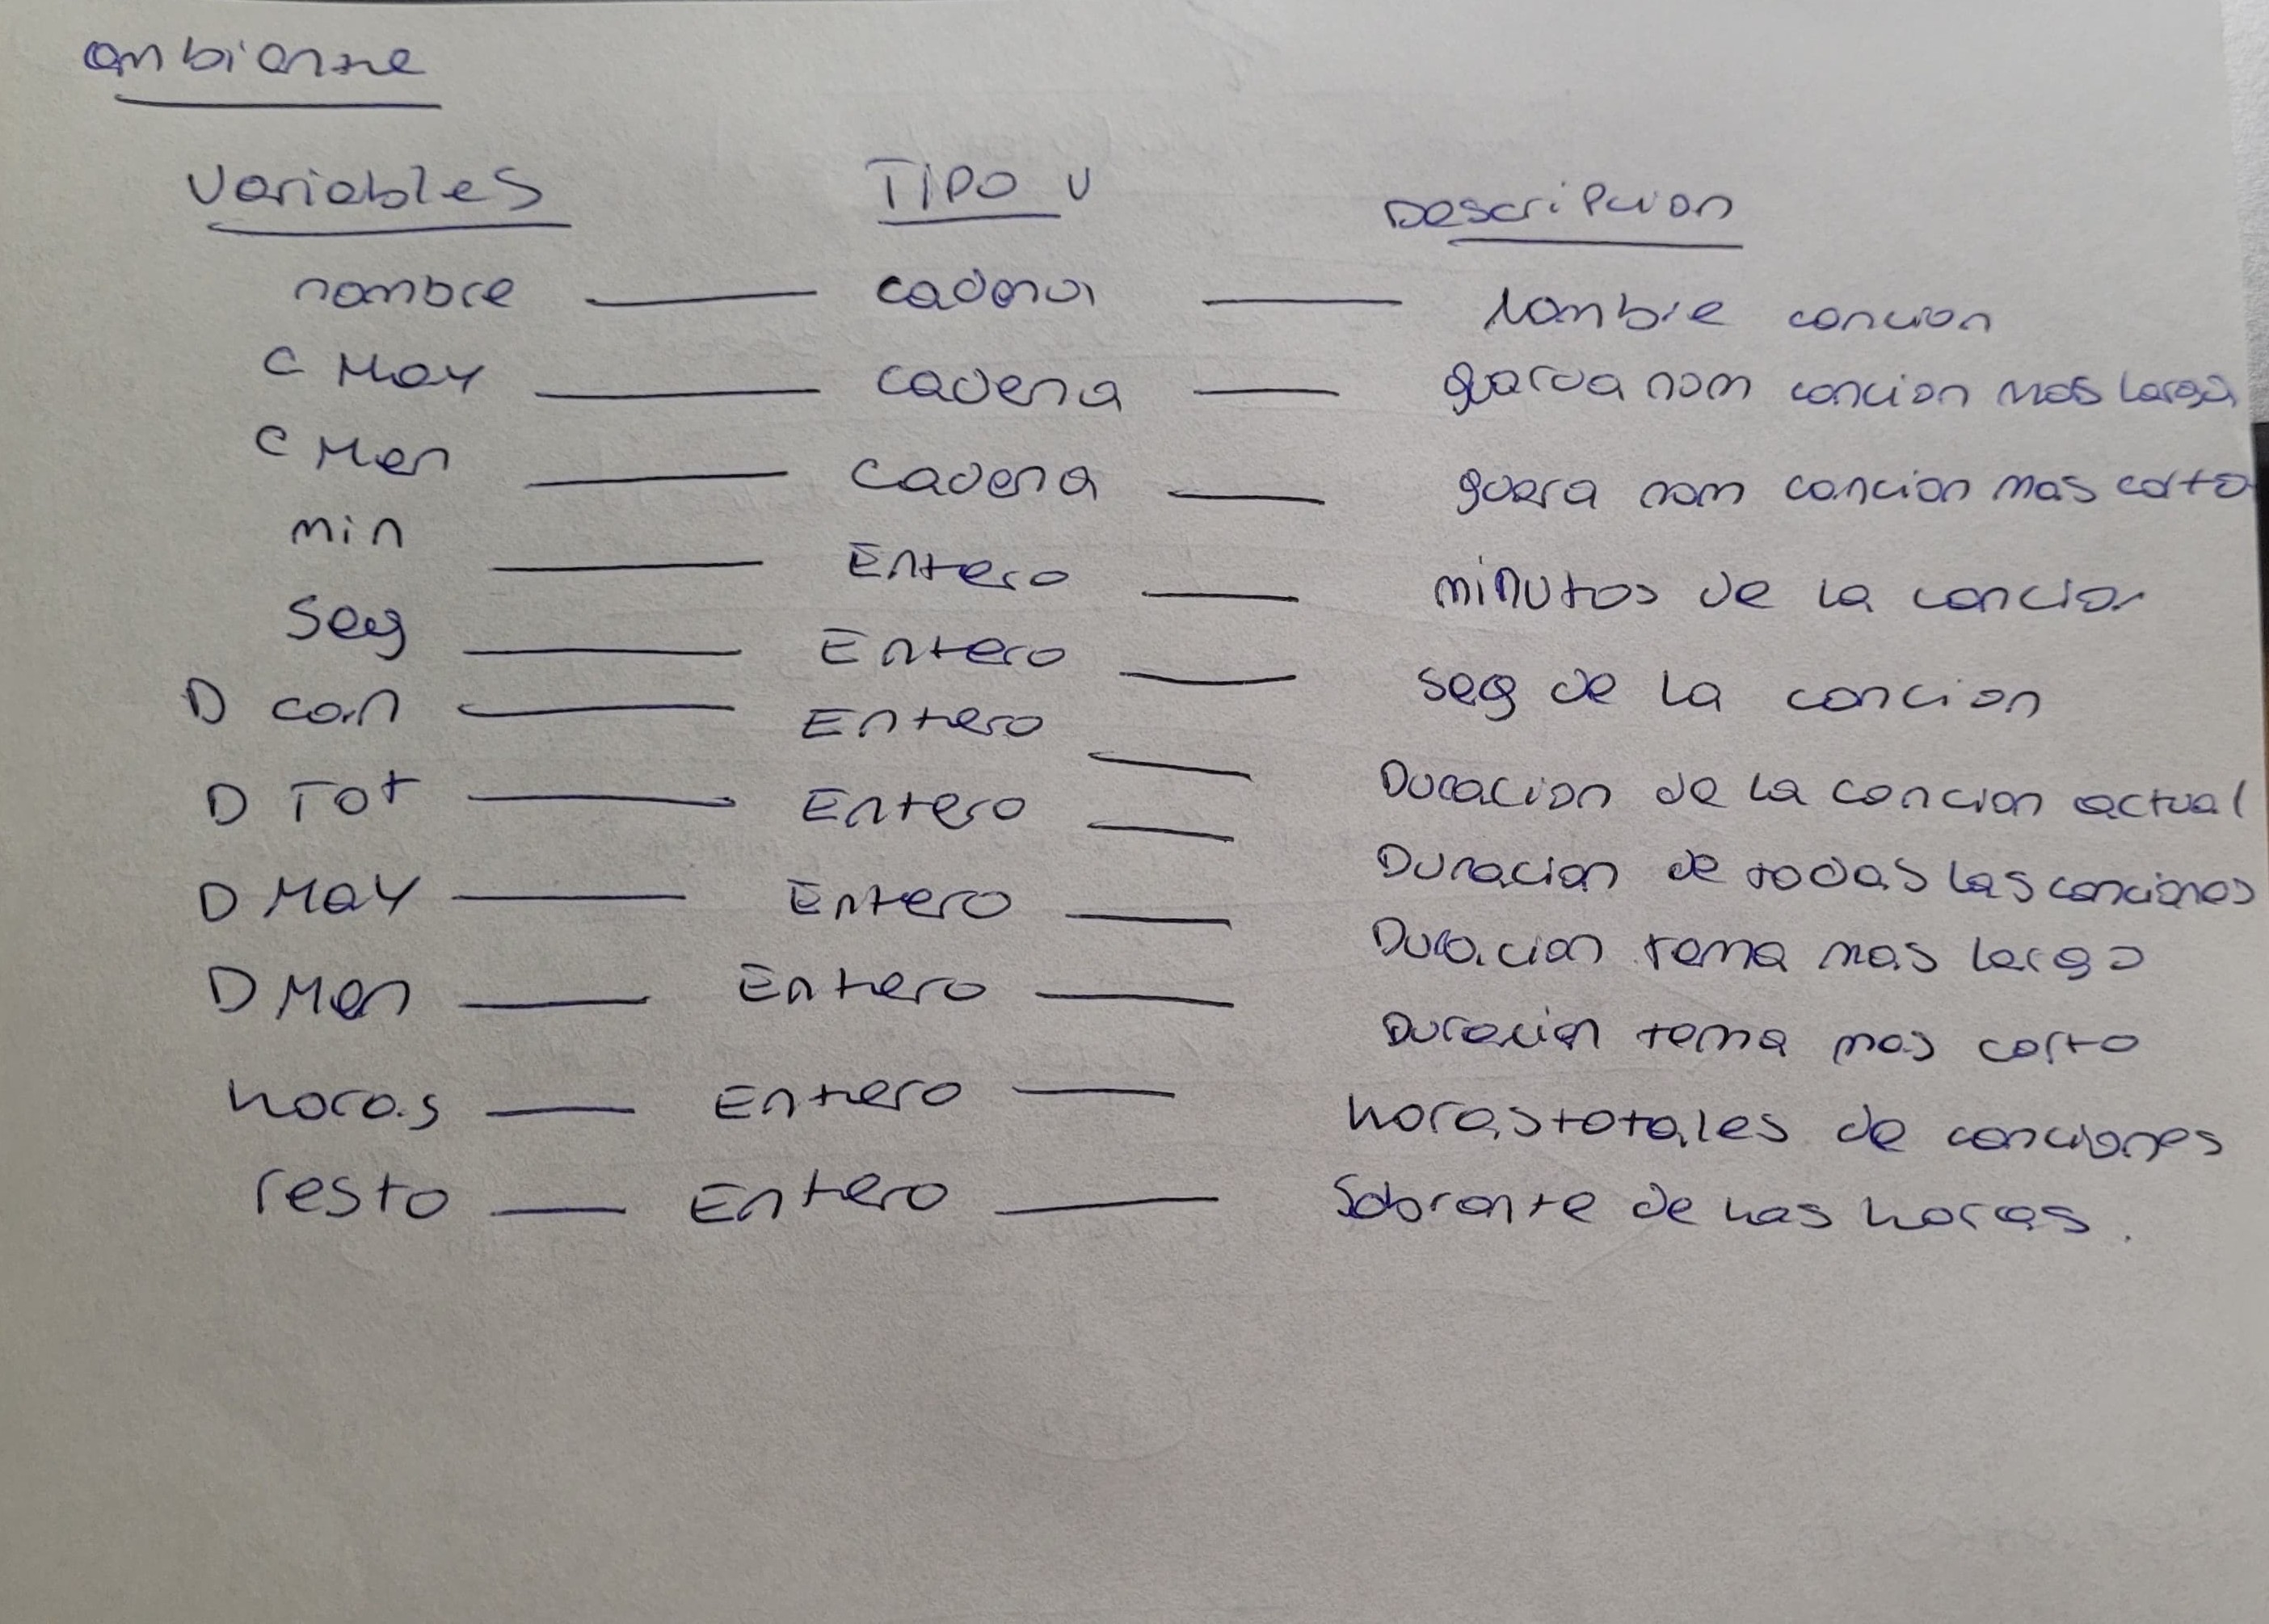 ambiente
Variables TIPO V Descripcion
nombre cadena Nombre cancion
C May cadena guarda nom cancion mas larga
C Men cadena guara nom cancion mas corta
min Entero minutos de la cancion
Seg Entero seg de la cancion
D can Entero Duracion de la cancion actual
D Tot Entero Duracion de todas las canciones
D May Entero Duracion tema mas largo
D Men Entero Duracion tema mas corto
horas Entero horas totales de canciones
resto Entero Sobrante de has horas.